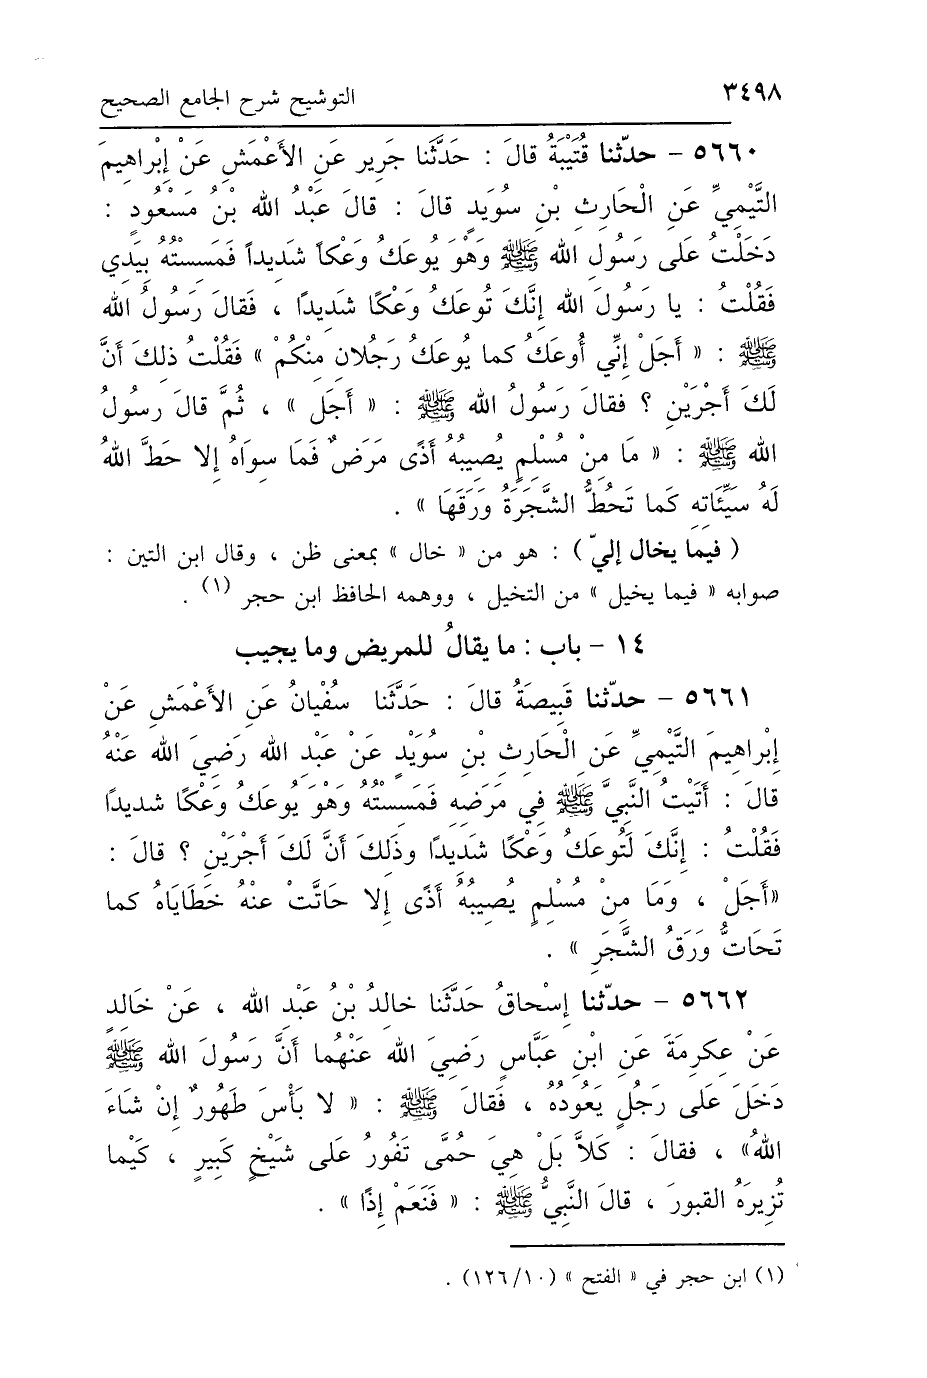 ٣٤٩٨ التوشيح شرح الجامع الصحيح
٥٦٦٠ - حدّثنا قُتَيْبَةُ قالَ : حَدَّثَنا جَرِير عَنِ الأَعْمَشِ عَنْ إِبْراهِيمَ
التَّيْمِيِّ عَنِ الْحَارِثِ بْنِ سُوَيدٍ قالَ : قالَ عَبْدُ الله بْنُ مَسْعُودٍ :
دَخَلْتُ عَلى رَسُولِ الله ﷺ وَهْوَ يُوعَكُ وَعْكاً شَدِيداً فَمَسِسْتُهُ بِيَدِي
فَقُلْتُ : يا رَسُولَ الله إِنَّكَ تُوعَكُ وَعْكًا شَدِيدًا ، فَقالَ رَسُولُ الله
ﷺ : « أَجَلْ إِنِّي أُوعَكُ كما يُوعَكُ رَجُلانِ مِنْكُمْ » فَقُلْتُ ذلِكَ أَنَّ
لَكَ أَجْرَيْنِ ؟ فقالَ رَسُولُ الله ﷺ : « أَجَل » ، ثُمَّ قالَ رَسولُ
الله ﷺ : « مَا مِنْ مُسْلِمٍ يُصِيبُهُ أَذًى مَرَضٌ فَمَا سِواهُ إِلا حَطَّ اللهُ
لَهُ سَيِّئَاتِهِ كَما تَحُطُّ الشَّجَرَةُ وَرَقَهَا » .
( فيما يخال إليّ ) : هو من « خال » بمعنى ظن ، وقال ابن التين :
صوابه « فيما يخيل » من التخيل ، ووهمه الحافظ ابن حجر (١) .
١٤ - باب : ما يقالُ للمريض وما يجيب
٥٦٦١ - حدّثنا قَبِيصَةُ قالَ : حَدَّثَنَا سُفْيانُ عَنِ الأَعْمَشِ عَنْ
إِبْراهِيمَ التَّيْمِيِّ عَنِ الْحَارِثِ بْنِ سُوَيْدٍ عَنْ عَبْدِ الله رَضِيَ الله عَنْهُ
قالَ : أَتَيْتُ النَّبِيَّ ﷺ فِي مَرَضِهِ فَمَسِسْتُهُ وَهْوَ يُوعَكُ وَعْكًا شديدًا
فَقُلْتُ : إِنَّكَ لَتُوعَكُ وَعْكًا شَدِيدًا وذلِكَ أَنَّ لَكَ أَجْرَيْنِ ؟ قالَ :
«أَجَلْ ، وَمَا مِنْ مُسْلِمٍ يُصِيبُهُ أَذًى إِلا حَاتَّتْ عنْهُ خَطَايَاهُ كما
تَحَاتُّ وَرَقُ الشَّجَرِ » .
٥٦٦٢ - حدّثنا إِسْحاقُ حَدَّثَنا خالِدُ بْنُ عَبْدِ الله ، عَنْ خَالِدٍ
عَنْ عِكرِمَةَ عَنِ ابْنِ عَبَّاسٍ رَضِيَ الله عَنْهُما أَنَّ رَسُولَ الله ﷺ
دَخَلَ عَلى رَجُلٍ يَعُودُهُ ، فَقالَ ﷺ : « لا بَأْسَ طَهُورٌ إِنْ شَاءَ
اللهُ» ، فقالَ : كَلاَّ بَلْ هِيَ حُمَّى تَفُورُ عَلى شَيْخٍ كَبِيرٍ ، كَيْما
تُزِيرَهُ القبورَ ، قالَ النَّبِيُّ ﷺ : « فَنَعَمْ إِذًا » .
(١) ابن حجر في « الفتح » (١٢٦/١٠) .